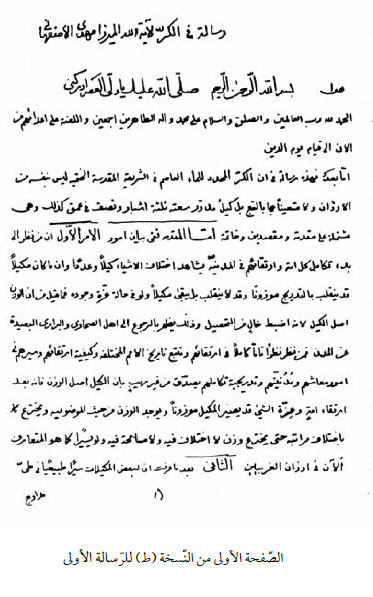 رسالة في الكر لآية الله الميرزا مهدي الاصفهاني
بسم الله الرحمن الرحيم صلى الله عليك يا ولي العصر ادركني
الحمد لله رب العالمين والصلوة والسلام على محمد واله الطاهرين اجمعين واللعنة على اعدائهم من
الان الى قيام يوم الدين
اما بعد فهذه رسالة في ان الكر المحدد للماء العاصم في الشريعة المقدسة الحنفية ليس بنفسه من
الاوزان ولا متعينا بها بالتبع بل كيل مدور سعته ثلثة اشبار ونصف في عمق كذلك وهى
مشتملة على مقدمة ومقصدين وخاتمة اما المقدمه ففى بيان امور الامر الأول ان من نظر الى
بدء تكامل كل امة وارتقائهم في المدنية يشاهد اختلاف الاشياء كيلا وعدّا وان ما كان مكيلا
قد ينقلب بالتدريج موزونا وقد لا ينقلب بل يبقى مكيلا ولو في حالة عزة وجوده فما قيل من ان الوزن
اصل الكيل لانه اضبط خالى من التحصيل وذلك يظهر بالرجوع الى اهل الصحارى والبرارى البعيدة
عن المدن فمن نظر نظرا تاما كاملا في ارتقائهم وتتبع تاريخ الامم المختلفة وكيفية ارتقائهم وسيرهم في
امور معاشهم وتمدنهم وتدريجية تكاملهم يصدق من غير ريب بان الكيل اصل الوزن فانه بعد
ارتقاء امة وعزة الشئ قد يصير المكيل موزونا ويوجد الوزن من حيث الموضوعية ويخترع
باختلاف مراتبه حتى يخترع وزن لا اختلاف فيه ولا مسامحة فيه ولو يسيرا كما هو المتعارف
الان في اوزان الغربيين الثاني بعد ما عرفت ان لبعض المكيلات سيرا طبيعيا في
الصّفحة الأولى من النّسخة (ط) للرّسالة الأولى